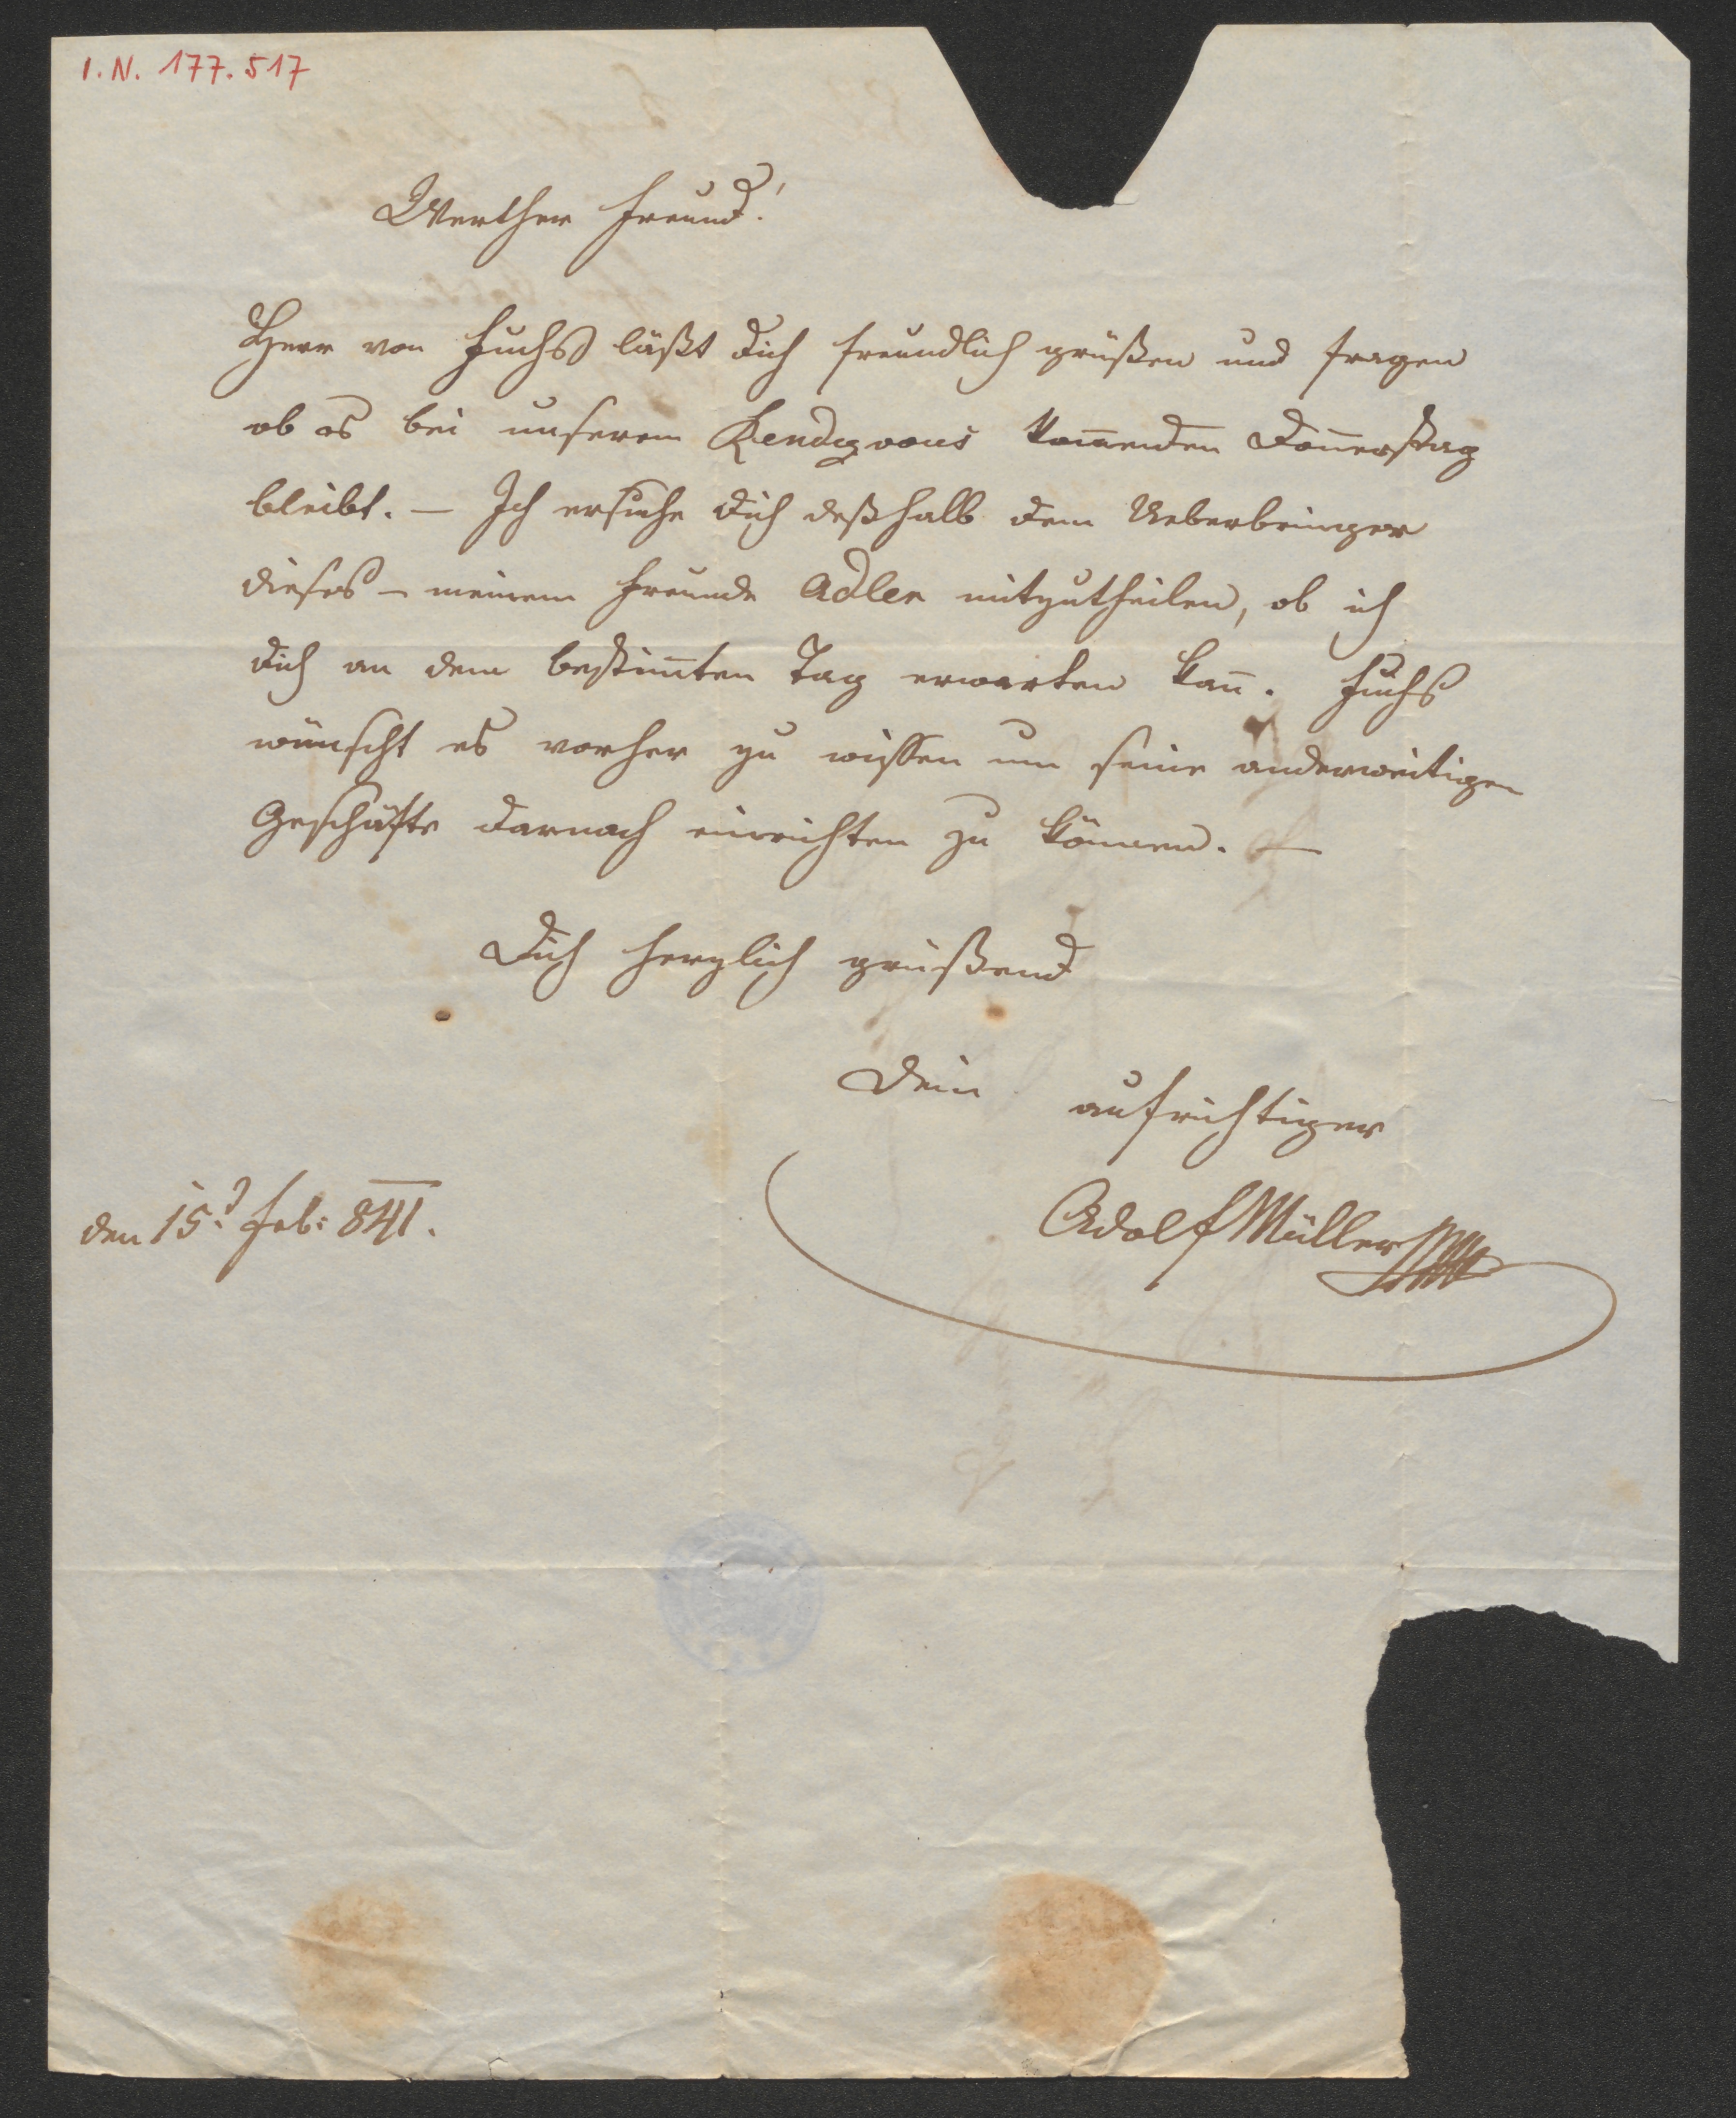 I.N. 177.517
Werther Freund!
Herr von Fuchs läßt Dich freundlich grüßen und fragen
ob es bei unserem Rendezvous kom̅enden Don̅erstag
bleibt. — Ich ersuche Dich deßhalb dem Ueberbringer
dieses — meinem Freunde Adler mitzutheilen, ob ich
Dich an dem bestim̅ten Tag erwarten kan̅. Fuchs
wünscht es vorher zu wissen um seine anderweitigen
Geschäfte darnach einrichten zu können. —
Dich herzlich grüßend
Dein aufrichtiger
Adolf Müller
den 15t Feb: 841.